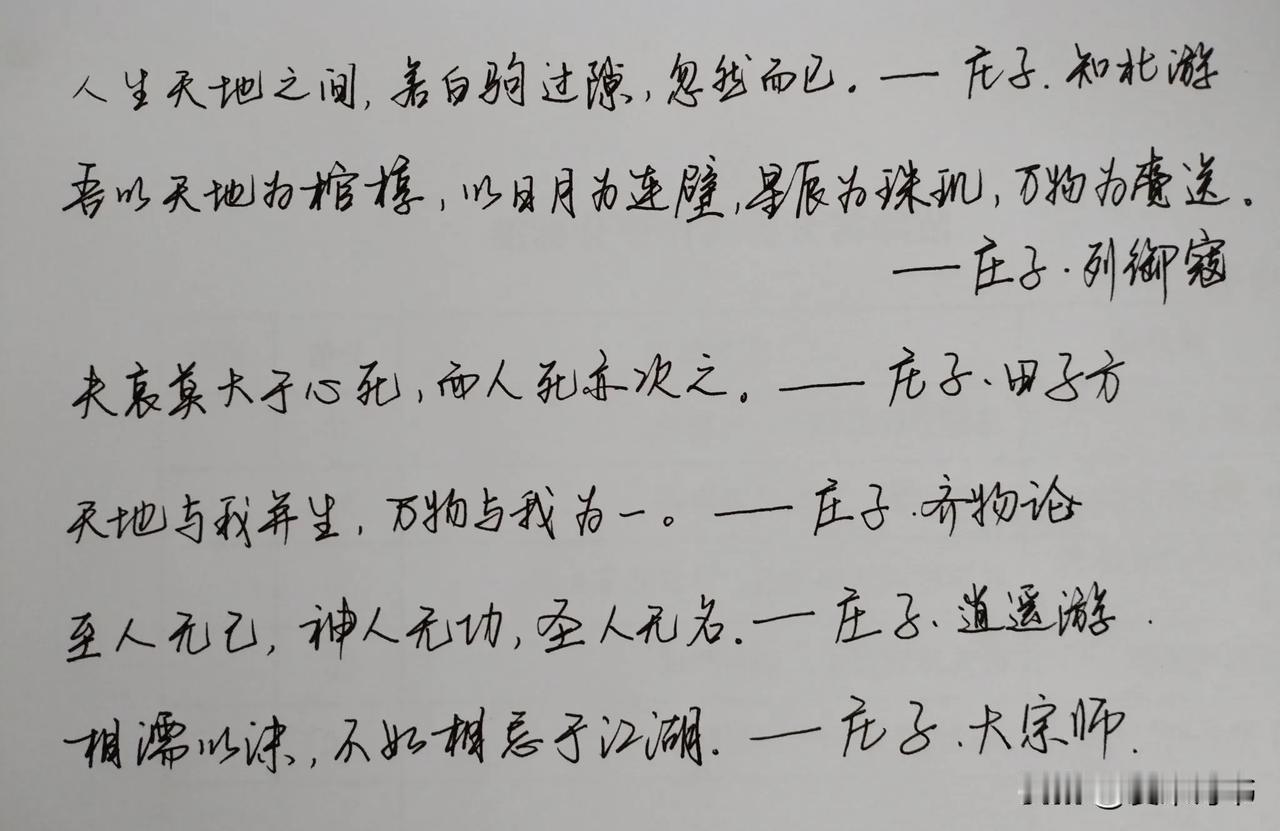 人生天地之间，若白驹过隙，忽然而已。— 庄子·知北游
吾以天地为棺椁，以日月为连璧，星辰为珠玑，万物为赍送。
— 庄子·列御寇
夫哀莫大于心死，而人死亦次之。— 庄子·田子方
天地与我并生，万物与我为一。— 庄子·齐物论
至人无己，神人无功，圣人无名。— 庄子·逍遥游.
相濡以沫，不如相忘于江湖。— 庄子·大宗师.